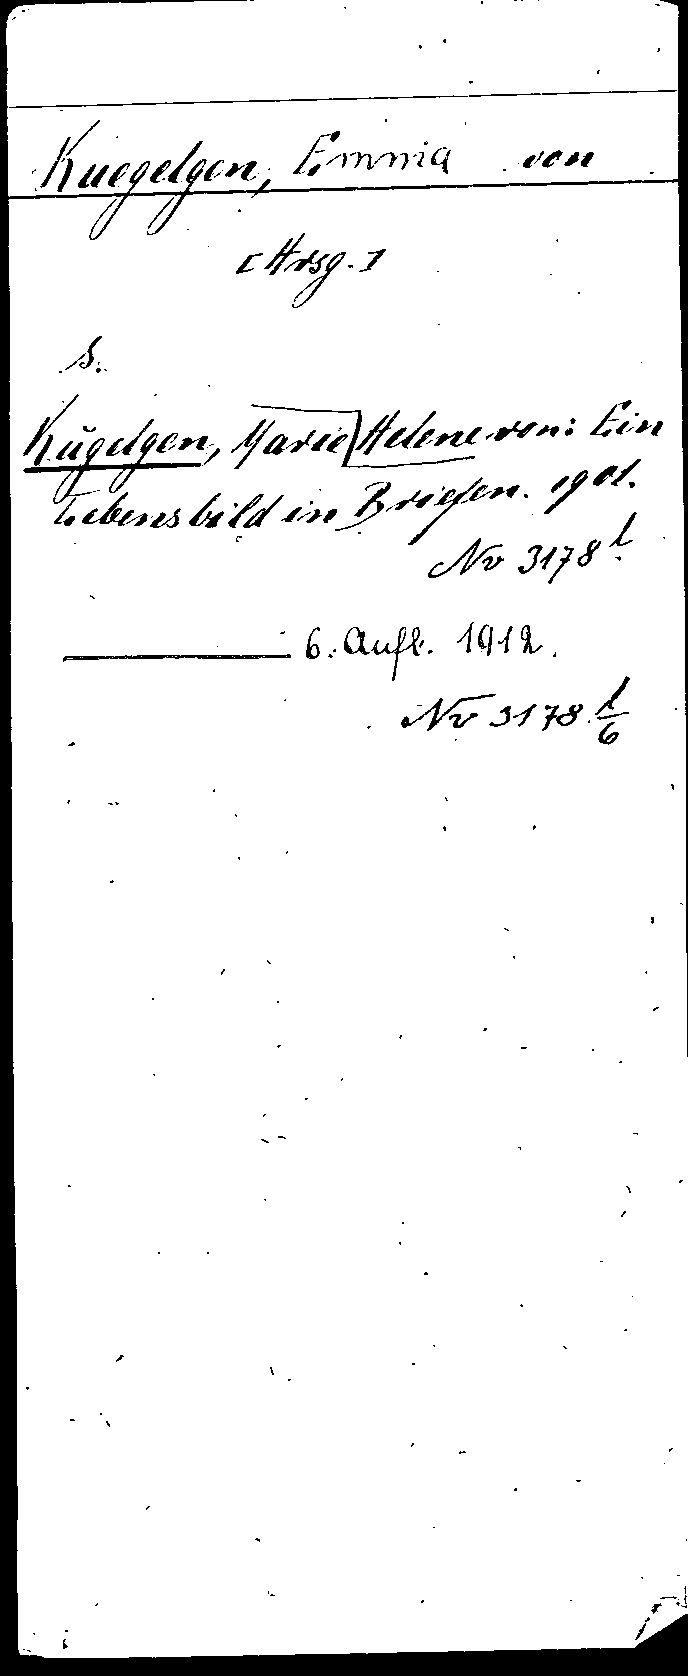 Kuegelgen, Emma von
[Hrsg.]
s.
Kügelgen, Marie Helene von: Ein
Lebensbild in Briefen. 1901.
Nv 3178 l
6. Aufl. 1912.
Nv 3178 l/6